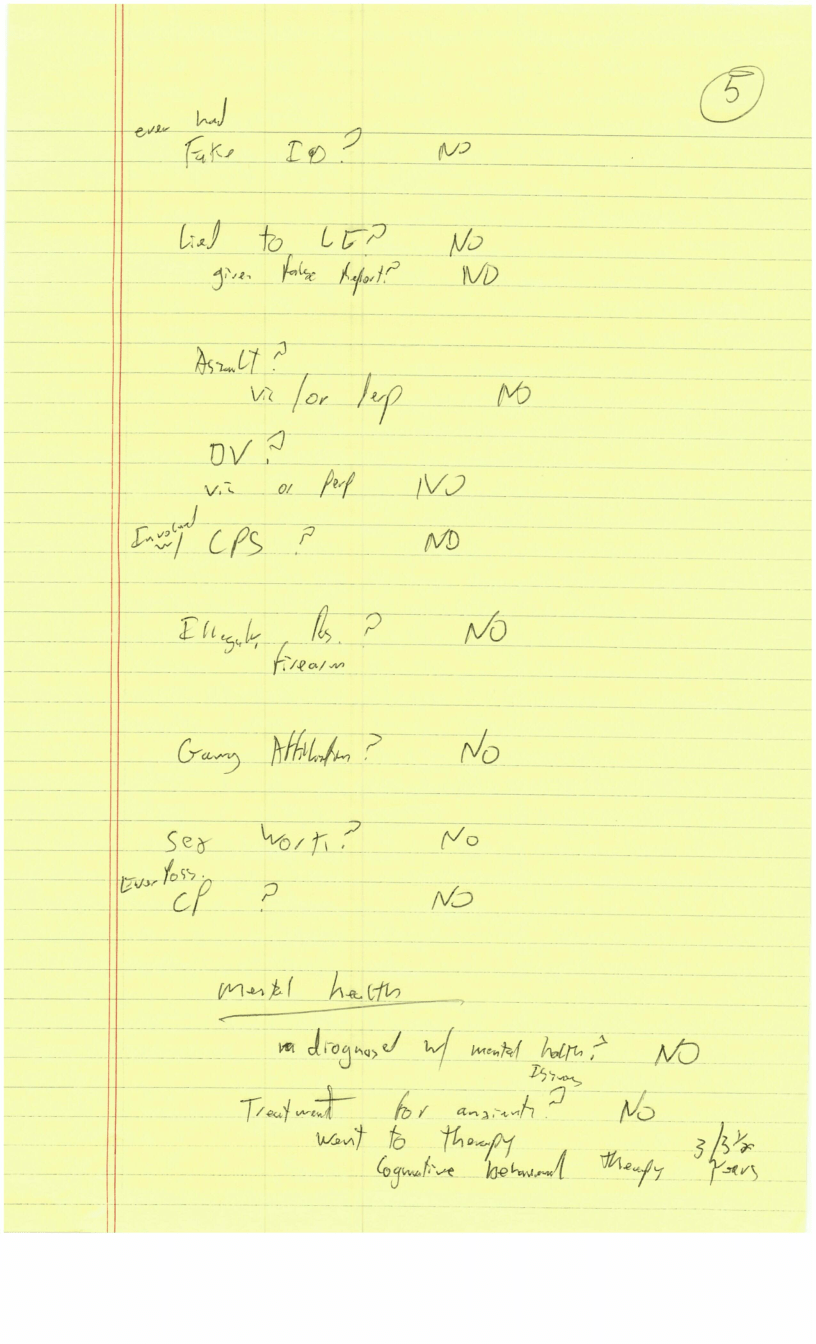 5
ever had
Fake ID? NO
Lied to LE? NO
given false report? NO
Assault?
vic /or perp NO
DV?
vic or perp NO
Involved
w/ CPS ? NO
Illegally Pos. ? NO
firearm
Gang Affiliation? NO
Sex Work? No
Ever Poss.
CP ? NO
Mental health
diagnosed w/ mental health? NO
Issues
Treatment for anxiety? No
went to therapy 3/3 1/2
Cognative behavioral therapy years